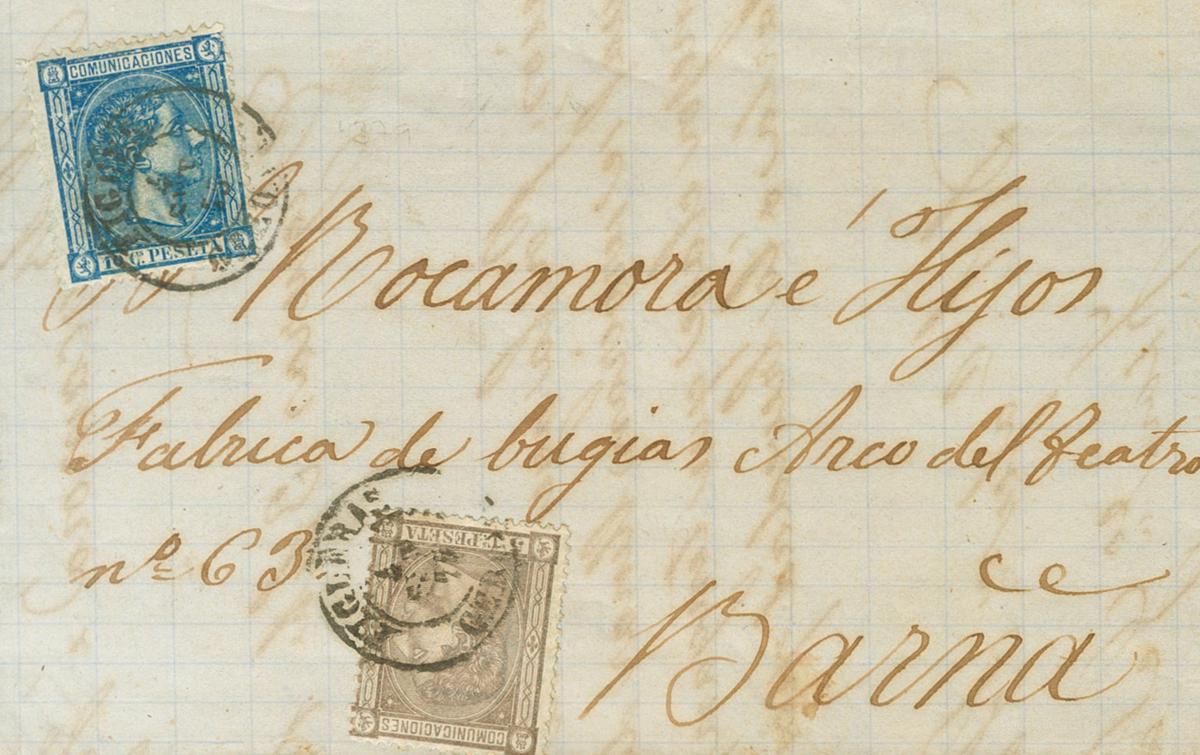 COMUNICACIONES
10 Cs PESETA
4379
Rocamora é Hijos
Fabrica de bugias Arco del Teatro
nº 63
ce
Barna
FIGUERAS
GER
5 Cs PESETA
COMUNICACIONES